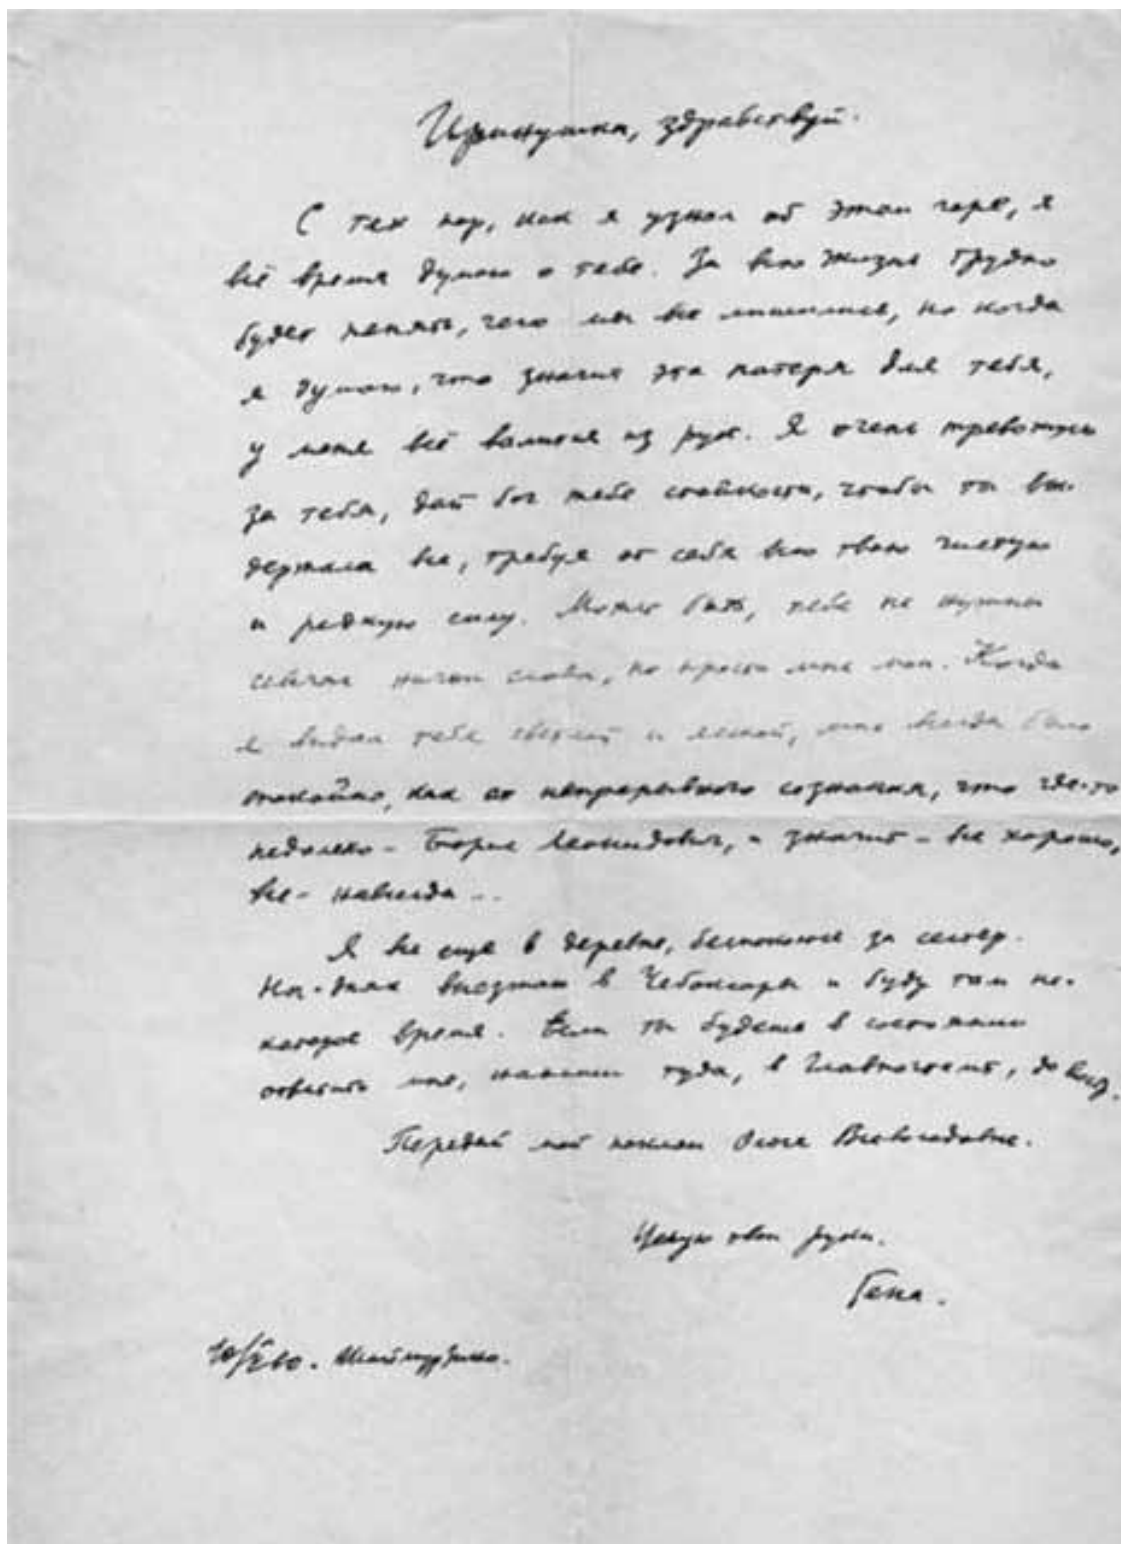 Иринушка, здравствуй.
С тех пор, как я узнал об этом горе, я
всё время думаю о тебе. За всю жизнь трудно
будет понять, чего мы все лишились, но когда
я думаю, что значит эта потеря для тебя,
у меня всё валится из рук. Я очень тревожусь
за тебя, дай бог тебе стойкости, чтобы ты вы-
держала все, требуя от себя всю твою чистую
и редкую силу. Может быть, тебе не нужны
сейчас ничьи слова, но прости мне мои. Когда
я видел тебя светлой и ясной, мне всегда было
спокойно, как от непрерывного сознания, что где-то
недалеко – Борис Леонидович, и значит – все хорошо,
все – навсегда...
Я все еще в деревне, беспокоюсь за сестер.
На-днях выезжаю в Чебоксары и буду там не-
которое время. Если ты будешь в состоянии
ответить мне, напиши туда, в Главпочтамт, до востр.
Передай мой поклон Ольге Всеволодовне.
Целую твои руки.
Гена.
Шаймурзино.